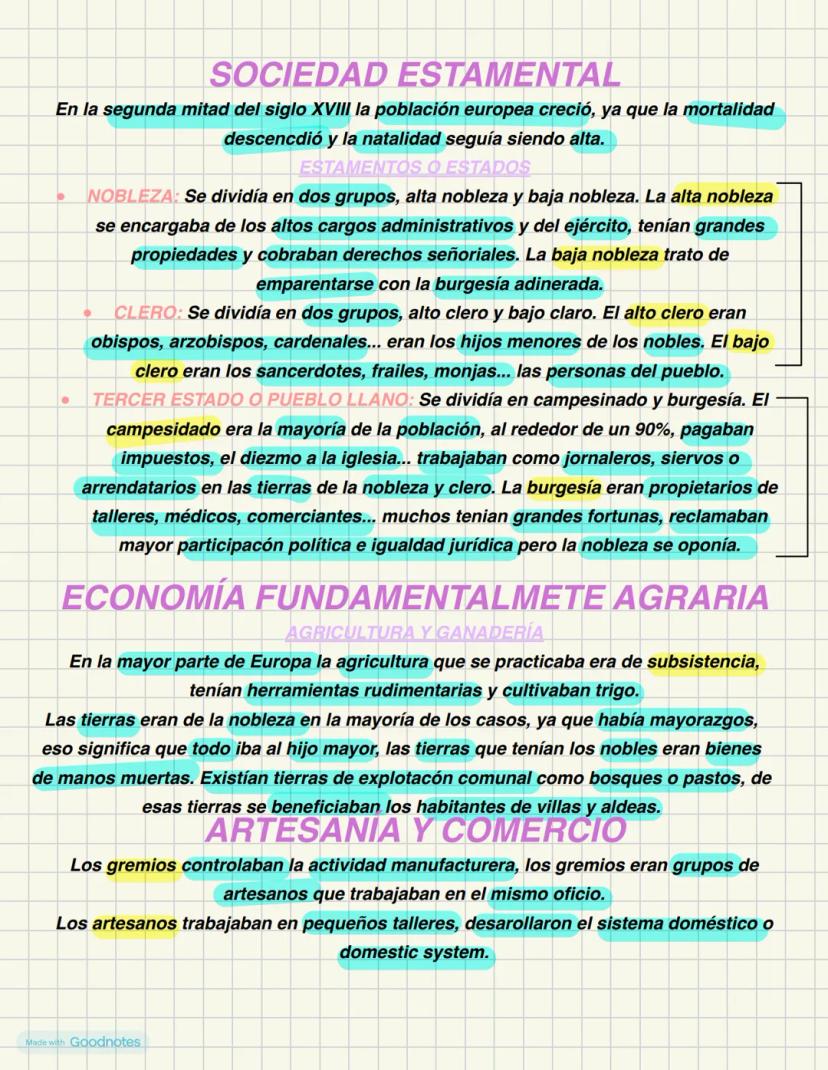 SOCIEDAD ESTAMENTAL
En la segunda mitad del siglo XVIII la población europea creció, ya que la mortalidad
descencdió y la natalidad seguía siendo alta.
ESTAMENTOS O ESTADOS
• NOBLEZA: Se dividía en dos grupos, alta nobleza y baja nobleza. La alta nobleza
se encargaba de los altos cargos administrativos y del ejército, tenían grandes
propiedades y cobraban derechos señoriales. La baja nobleza trato de
emparentarse con la burgesía adinerada.
• CLERO: Se dividía en dos grupos, alto clero y bajo claro. El alto clero eran
obispos, arzobispos, cardenales... eran los hijos menores de los nobles. El bajo
clero eran los sancerdotes, frailes, monjas... las personas del pueblo.
• TERCER ESTADO O PUEBLO LLANO: Se dividía en campesinado y burgesía. El
campesidado era la mayoría de la población, al rededor de un 90%, pagaban
impuestos, el diezmo a la iglesia... trabajaban como jornaleros, siervos o
arrendatarios en las tierras de la nobleza y clero. La burgesía eran propietarios de
talleres, médicos, comerciantes... muchos tenian grandes fortunas, reclamaban
mayor participacón política e igualdad jurídica pero la nobleza se oponía.
ECONOMÍA FUNDAMENTALMETE AGRARIA
AGRICULTURA Y GANADERÍA
En la mayor parte de Europa la agricultura que se practicaba era de subsistencia,
tenían herramientas rudimentarias y cultivaban trigo.
Las tierras eran de la nobleza en la mayoría de los casos, ya que había mayorazgos,
eso significa que todo iba al hijo mayor, las tierras que tenían los nobles eran bienes
de manos muertas. Existían tierras de explotacón comunal como bosques o pastos, de
esas tierras se beneficiaban los habitantes de villas y aldeas.
ARTESANÍA Y COMERCIO
Los gremios controlaban la actividad manufacturera, los gremios eran grupos de
artesanos que trabajaban en el mismo oficio.
Los artesanos trabajaban en pequeños talleres, desarollaron el sistema doméstico o
domestic system.
Made with Goodnotes